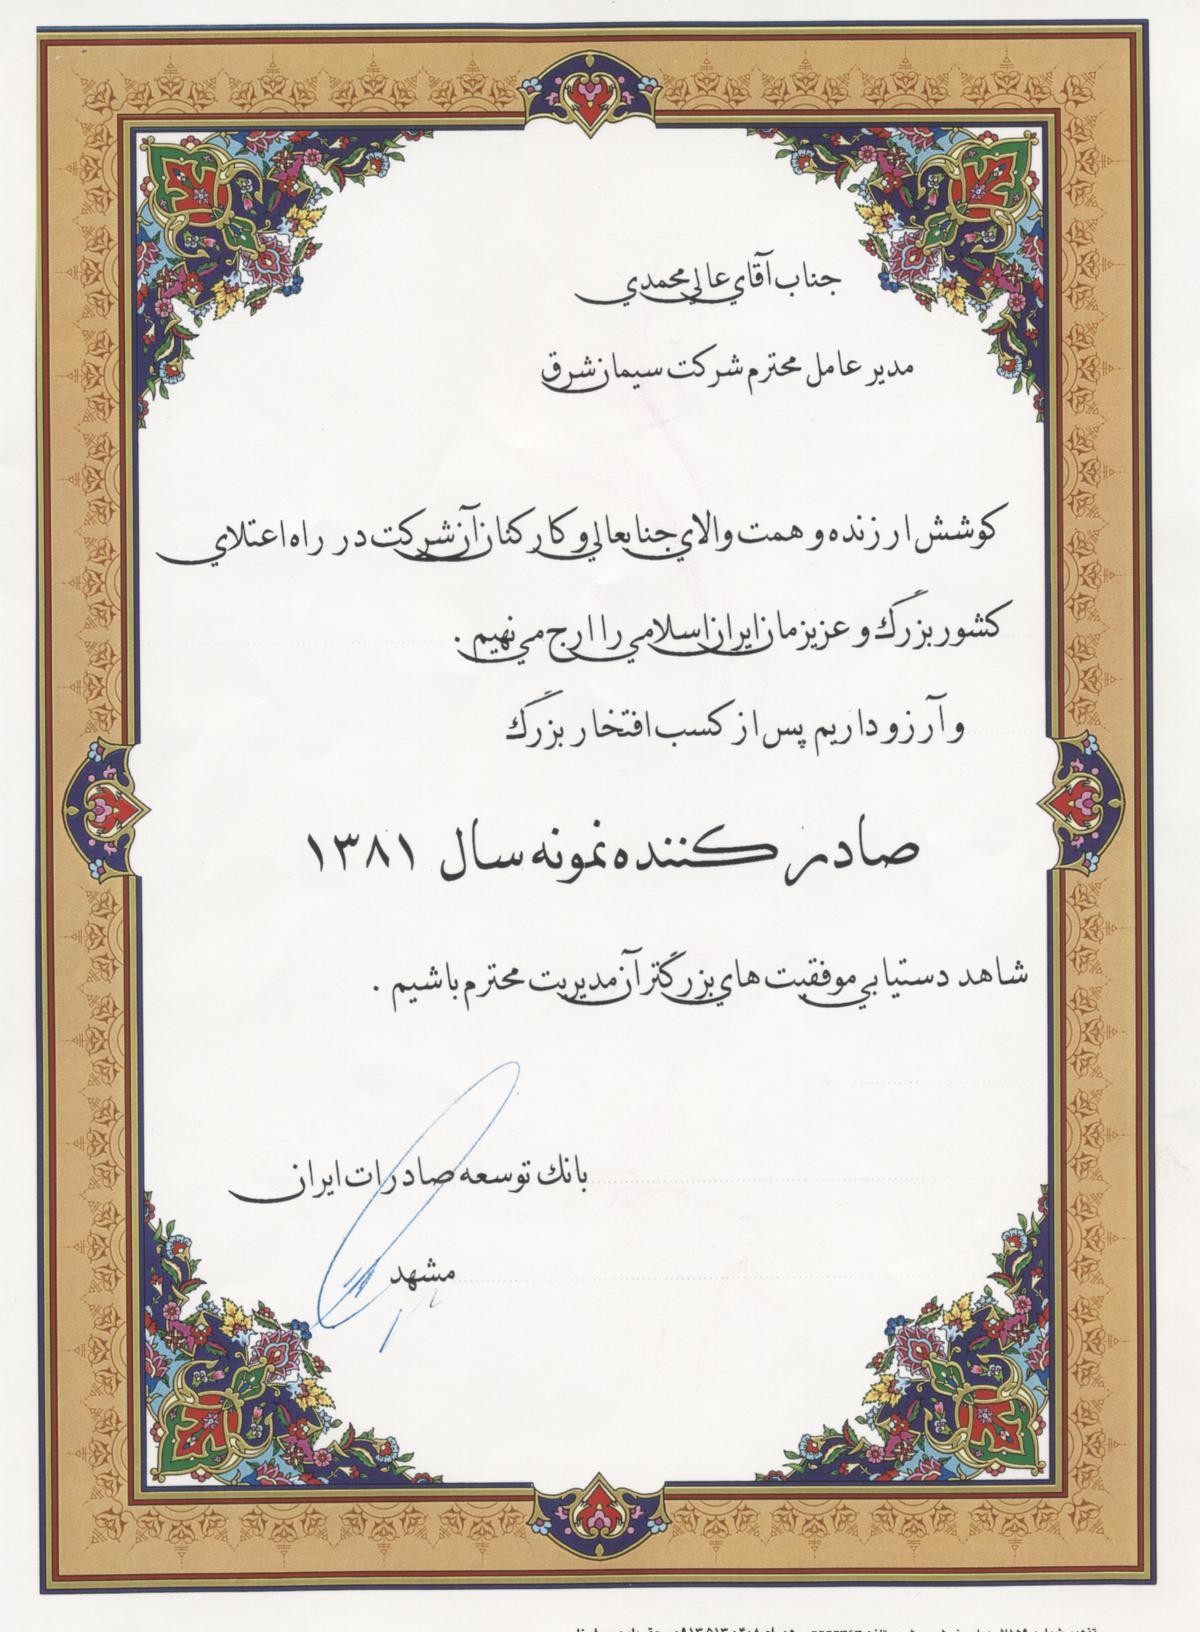 جناب آقاي عالي محمدي
مدير عامل محترم شركت سيمان شرق
كوشش ارزنده و همت والاي جنابعالي و كاركنان آن شركت در راه اعتلاي
كشور بزرگ و عزيزمان ايران اسلامي را ارج مي نهيم .
و آرزو داريم پس از كسب افتخار بزرگ
صادر كننده نمونه سال ۱۳۸۱
شاهد دستيابي موفقيت هاي بزرگتر آن مديريت محترم باشيم .
بانك توسعه صادرات ايران
مشهد